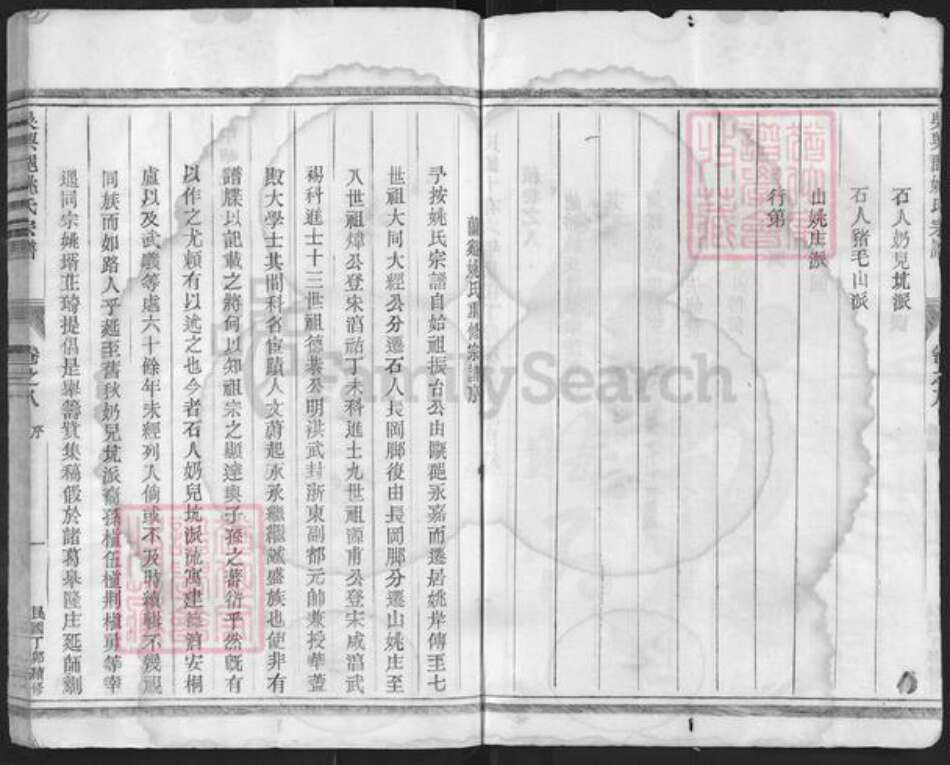 石人奶兒坑派
石人豬毛山派
山姚庄派
行第
蘭谿姚氏重修宗譜序
予按姚氏宗譜自始祖振台公由甌永嘉而遷居姚岸傳至七
世祖大同大經公分遷石人長岡腳復由長岡腳分遷山姚庄至
八世祖煒公登宋淳祐丁未科進士九世祖源甫公登宋咸淳武
錫科進士十三世祖德公明洪武封浙東副都元帥兼授華蓋
殿大學士其間科名宦蹟人文蔚起承承繼繼誠盛族也使非有
譜牒以記載之將何以知祖宗之顯達與子孫之蕃衍乎然既有
以作之尤賴有以述之也今者石人奶兒坑派流寓建德淳安桐
廬以及武義等處六十餘年未經列入倘或不及時續輯不幾視
同族而如路人乎延至舊秋奶兒坑派裔孫植伍植荆植等幸
遇同宗姚壻提倡是舉籌貲集稿假於諸葛阜隆庄延師
吳興姚氏宗譜
卷之八
序
一
民國丁卯續修
FamilySearch